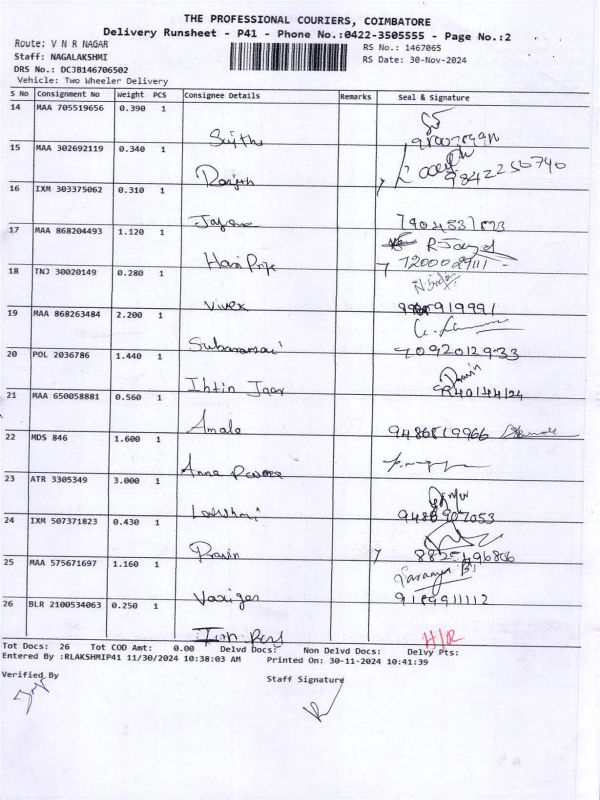 THE PROFESSIONAL COURIERS, COIMBATORE
Delivery Runsheet - P41 - Phone No.:0422-3505555 - Page No.:2
Route: V N R NAGAR RS No.: 1467065
Staff: NAGALAKSHMI RS Date: 30-Nov-2024
DRS No.: DCJB146706502
Vehicle: Two Wheeler Delivery
S No Consignment No Weight PCS Consignee Details Remarks Seal & Signature
14 MAA 705519656 0.390 1
15 MAA 302692119 0.340 1
Ranjith 9842250740
16 IXM 303375062 0.310 1
17 MAA 868204493 1.120 1
Hari Priya 7200002911
18 TNJ 30020149 0.280 1
Vivek
19 MAA 868263484 2.200 1
7092012933
20 POL 2036786 1.440 1
21 MAA 650058881 0.560 1
Amala 9486819966
22 MDS 846 1.600 1
Anna
23 ATR 3305349 3.000 1
Lakshmi
24 IXM 507371823 0.430 1
Pravin
25 MAA 575671697 1.160 1
26 BLR 2100534063 0.250 1
H/R
Tot Docs: 26 Tot COD Amt: 0.00 Delvd Docs: Non Delvd Docs: Delvy Pts:
Entered By :RLAKSHMIP41 11/30/2024 10:38:03 AM Printed On: 30-11-2024 10:41:39
Verified By Staff Signature